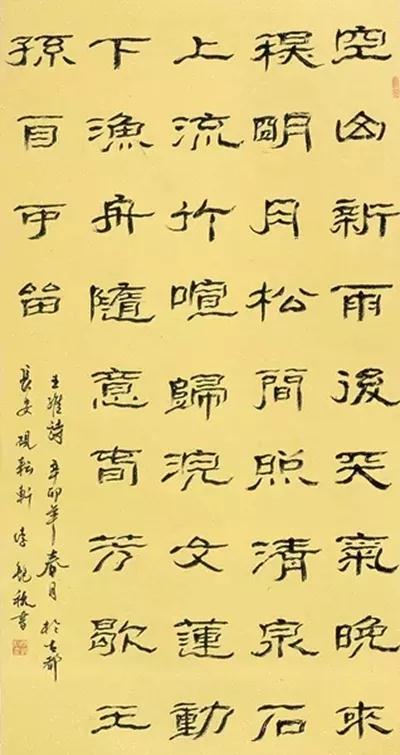 空山新雨後天氣晚來
秋明月松間照清泉石
上流竹喧歸浣女蓮動
下漁舟隨意春芳歇王
孫自可留
王維詩 辛卯年春月於古都
長安硯耘軒 李秋書